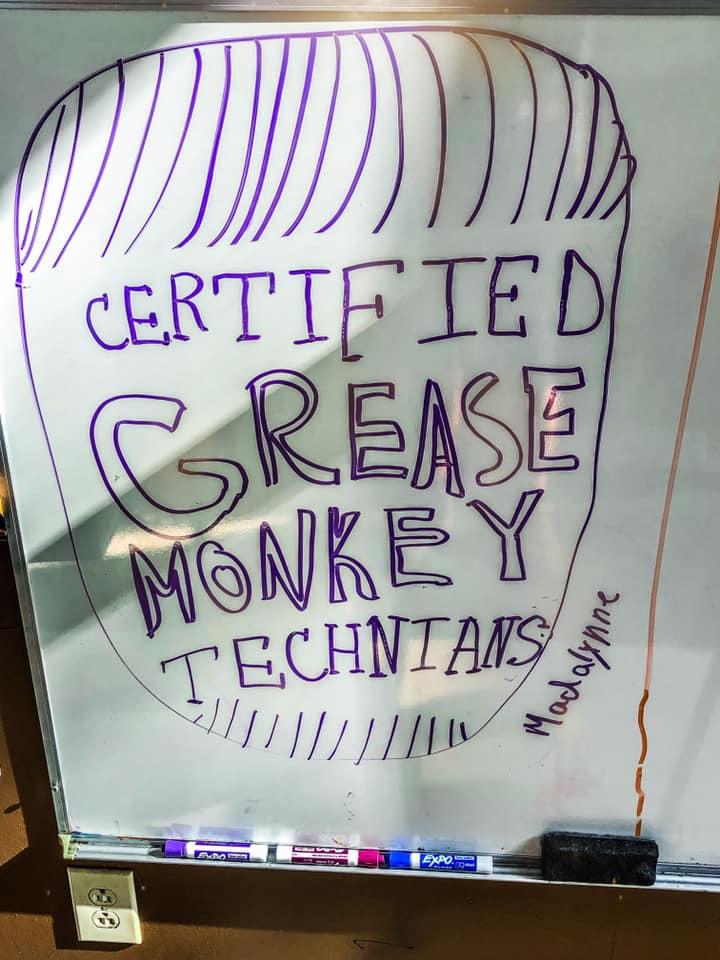 CERTIFIED
GREASE
MONKEY
TECHNIANS
Madalynne
EXPO
EXPO